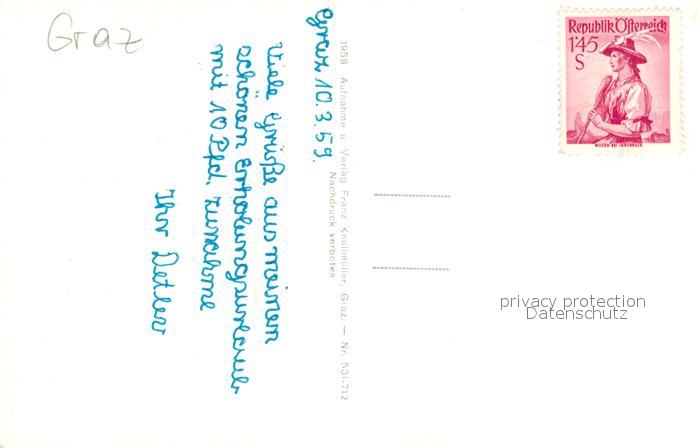 Graz
Republik Österreich
1'45
S
WILTEN BEI INNSBRUCK
Graz, 10.3.59.
Viele Grüße aus meinem
schönen Erholungsurlaub
mit 10 Pfd. Zunahme
Ihr Detlev
1958 Aufnahme u. Verlag Franz Knollmüller, Graz. — Nr. 501-712
Nachdruck verboten
privacy protection
Datenschutz